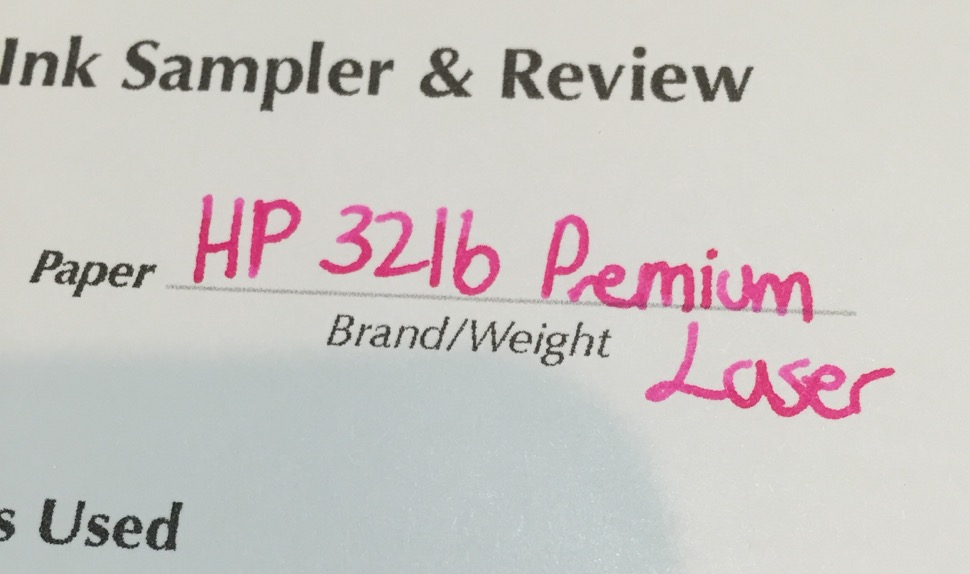 Ink Sampler & Review
Paper HP 32lb Premium
Brand/Weight
Laser
s Used